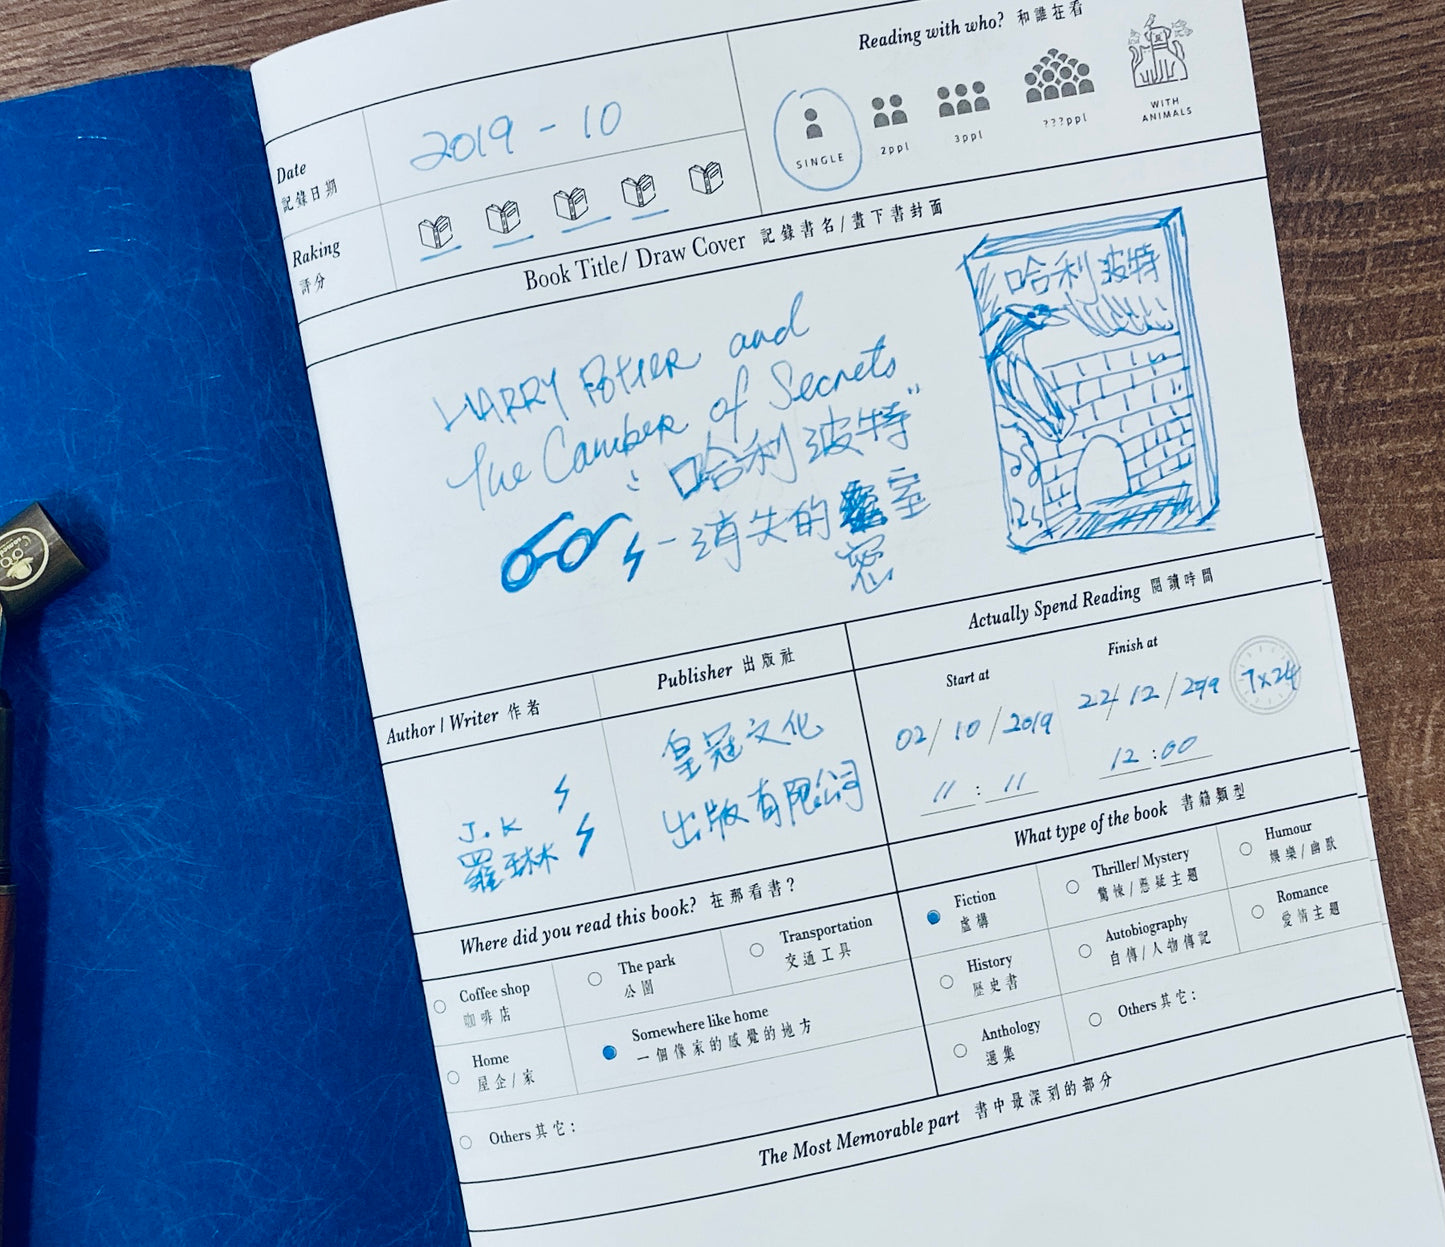 Reading with who? 和誰在看
Date
記錄日期
2019 - 10
SINGLE
2ppl
3ppl
???ppl
WITH
ANIMALS
Raking
評分
Book Title/ Draw Cover 記錄書名/畫下書封面
HARRY PottER and
the CambeR of Secrets
"哈利波特"
-消失的室
密
哈利波特
Author / Writer 作者
J.K
羅琳
Publisher 出版社
皇冠文化
出版有限公司
Actually Spend Reading 閱讀時間
Start at
02/10/2019
11:11
Finish at
22/12/2019
12:00
7x24
Where did you read this book? 在那看書?
Coffee shop
咖啡店
The park
公園
Transportation
交通工具
Home
屋企/家
Somewhere like home
一個像家的感覺的地方
Others 其它:
What type of the book 書籍類型
Fiction
虛構
Thriller/ Mystery
驚悚/懸疑主題
Humour
娛樂/幽默
History
歷史書
Autobiography
自傳/人物傳記
Romance
愛情主題
Anthology
選集
Others 其它:
The Most Memorable part 書中最深刻的部分